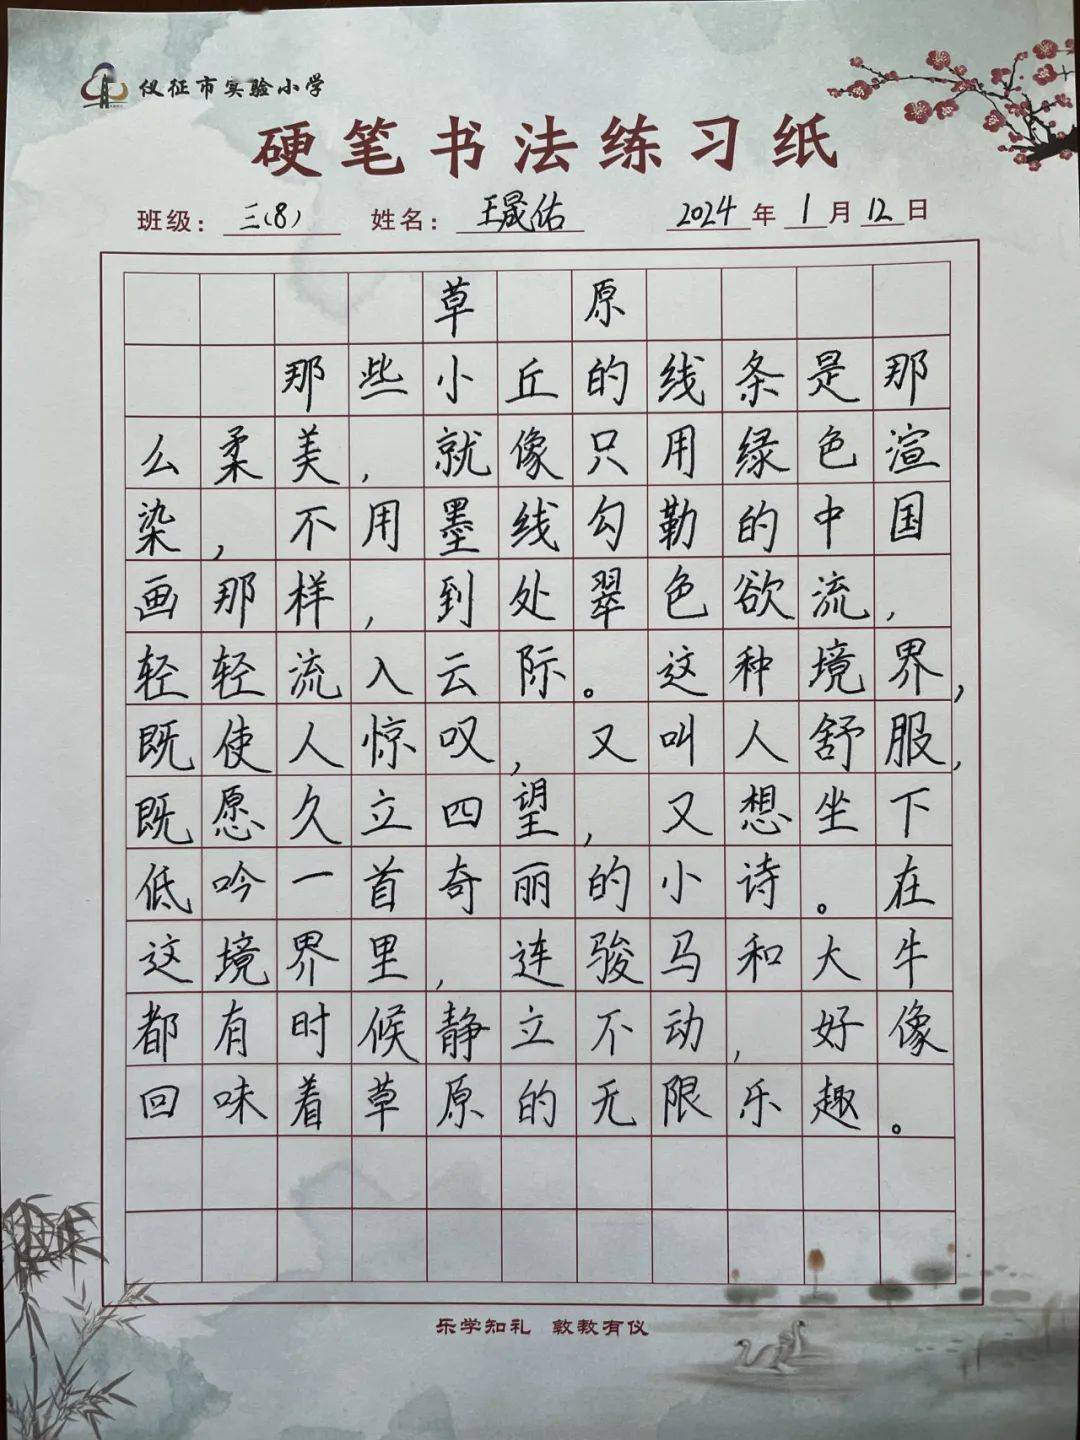 仪征市实验小学
硬笔书法练习纸
班级：三（8） 姓名：王晟佑 2024年1月12日
草原
那些小丘的线条是那
么柔美，就像只用绿色渲
染，不用墨线勾勒的中国
画那样，到处翠色欲流，
轻轻流入云际。这种境界，
既使人惊叹，又叫人舒服，
既愿久立四望，又想坐下
低吟一首奇丽的小诗。在
这境界里，连骏马和大牛
都有时候静立不动，好像
回味着草原的无限乐趣。
乐学知礼 敦教有仪